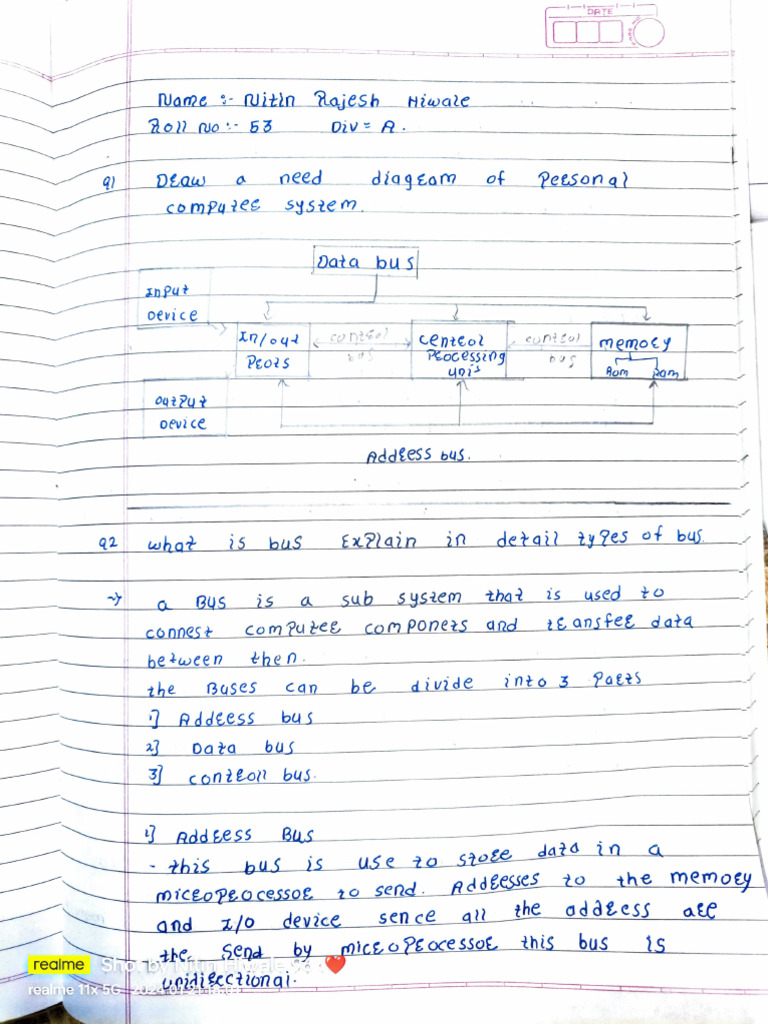 DATE
Name :- Nitin Rajesh Hiwale
Roll No :- 53 Div = A.
Q1 Draw a need diagram of Personal
computer system.
Data bus
Input
Device
In/out
Peots
control
bus
Central
Processing
unit
control
bus
memory
Rom Ram
output
Device
Address bus.
Q2 what is bus Explain in detail types of bus.
→ a Bus is a sub system that is used to
connest computer componets and transfer data
between then.
the Buses can be divide into 3 Parts
1] Address bus
2] Data bus
3] controll bus.
1] Address Bus
- this bus is use to store data in a
microprocessor to send. Addresses to the memory
and I/O device sence all the address are
the send by microprocessor this bus is
unidirectional.
realme Shot by Nitin Hiwale
realme 11x 5G